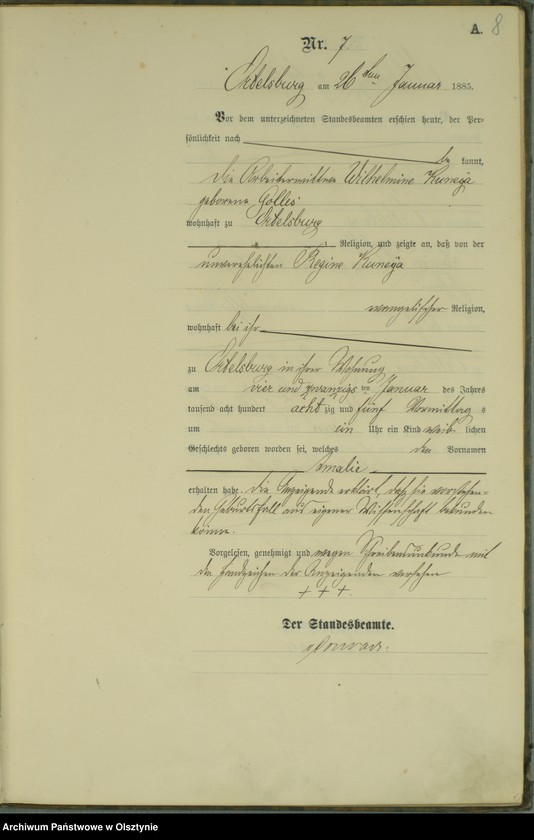 A. 8
Nr. 7
Ortelsburg am 26ten Januar 1885.
Vor dem unterzeichneten Standesbeamten erschien heute, der Per-
sönlichkeit nach
be kannt,
die Arbeiterwittwe Wilhelmine Kuneya
geborene Golles
wohnhaft zu Ortelsburg
Religion, und zeigte an, daß von der
unverehelichten Regine Kuneya
evangelischer Religion,
wohnhaft bei ihr
zu Ortelsburg in ihrer Wohnung
am vier und zwanzigs ten Januar des Jahres
tausend acht hundert acht zig und fünf Vormittag s
um ein Uhr ein Kind weib lichen
Geschlechts geboren worden sei, welches den Vornamen
Amalie
erhalten habe. Die Anzeigende erklärt, daß sie vorstehen-
den Geburtsfall aus eigener Wissenschaft bekunden
könne.
Vorgelesen, genehmigt und wegen Schreibensunkunde mit
den Handzeichen der Anzeigenden versehen
+ + +
Der Standesbeamte.
Archiwum Państwowe w Olsztynie